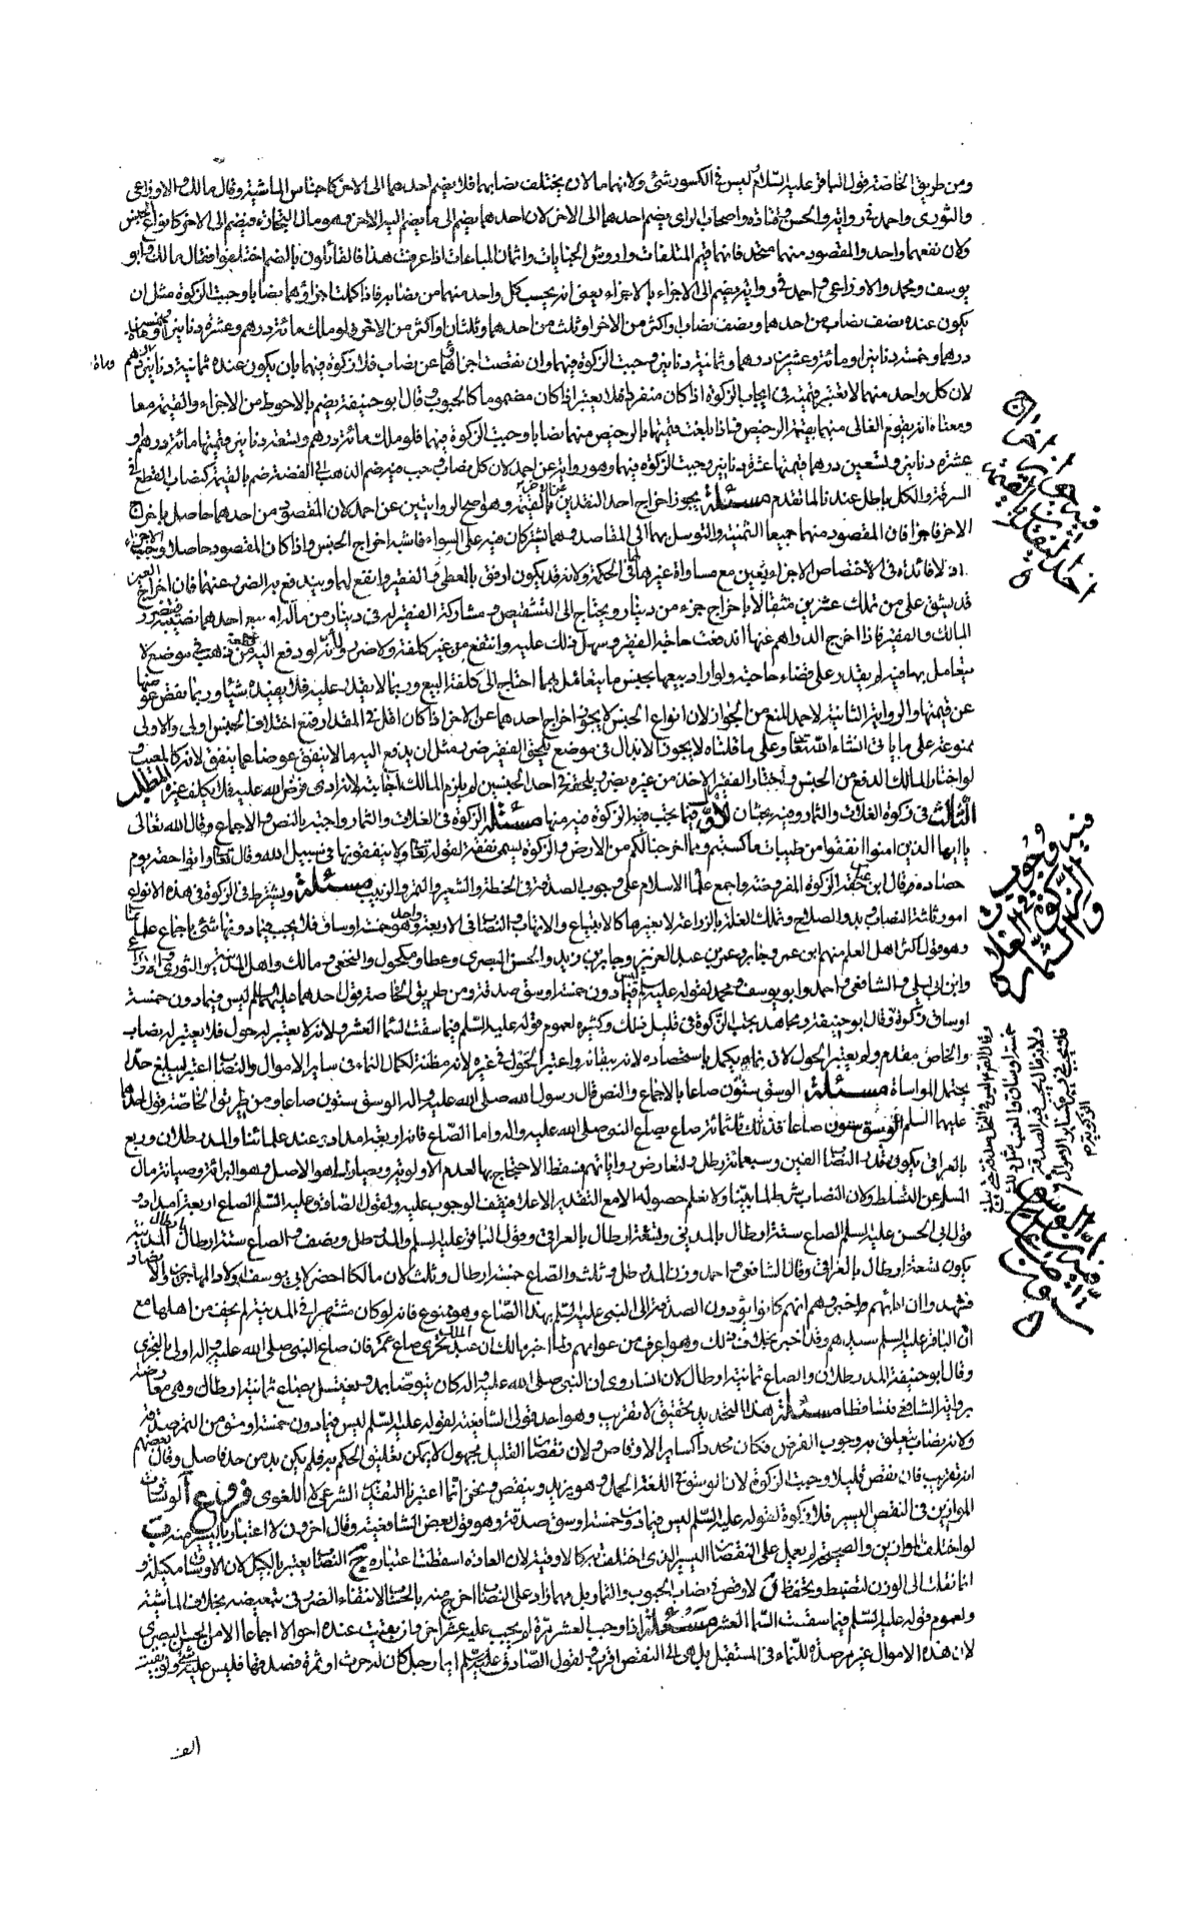 ومن طريق الخاصة قول الباقر عليه السلام وليس في الكسور شئ ولانهما مالان يختلف نصابهما فلا يضم احدهما الى الاخر كاجناس الماشية وقال مالك والاوزاعى
والثورى واحمد في رواية والحسن وقتادة واصحاب الراى يضم احدهما الى الاخر لان احدهما يضم الى ما يضم اليه الاخر وهو مال التجارة فيضم الى الاخر كانواع الجنس
ولان نفعهما واحد والمقصود منهما متحد فانهما قيم المتلفات واروش الجنايات واثمان المباعات اذا عرفت هذا فالقائلون بالضم اختلفوا فقال مالك وابو
يوسف ومحمد والاوزاعى واحمد في رواية يضم الى الاجزاء بالاجزاء يعنى انه يحسب كل واحد منهما من نصابه فاذا كملت اجزاؤهما نصابا وجبت الزكوة مثل ان
يكون عنده نصف نصاب من احدهما ونصف نصاب او اكثر من الاخر او ثلث من احدهما وثلثان او اكثر من الاخر فلو ملك مائة درهم وعشرة دنانير او مائة وخمسين
درهما وخمسة دنانير او مائة وعشرين درهما وثمانية دنانير وجبت الزكوة فيهما وان نقصت اجزاؤهما عن نصاب فلا زكوة فيهما بان يكون عنده ثمانية دنانير ومائة درهم
لان كل واحد منهما لا تعتبر قيمته في ايجاب الزكوة اذا كان منفردا فلا يعتبر اذا كان مضموما كالحبوب وقال ابو حنيفة يضم بالاحوط من الاجزاء والقيمة معا
ومعناه انه يقوم الغالى منهما بقيمة الرخيص فاذا بلغت قيمتها بالرخيص منهما نصابا وجبت الزكوة فيهما فلو ملك مائة درهم وتسعة دنانير قيمتها مائة درهم او
عشرة دنانير وتسعين درهما قيمتها عشرة دنانير وجبت الزكوة فيهما وهو رواية عن احمد لان كل نصاب وجب فيه ضم الذهب الى الفضة ضم بالقيمة كنصاب القطع في
السرقة والكل باطل عندنا لما تقدم مسئلة يجوز اخراج احد النقدين عن الاخر بالقيمة وهو اصح الروايتين عن احمد لان المقصود من احدهما حاصل باخراج
الاخر فاجزا فان المقصود منهما جميعا الثمنية والتوسل بهما الى المقاصد وهما يشتركان فيه على السواء فاشبه اخراج الجنس واذا كان المقصود حاصلا وجب الاجزاء
اذ لا فائدة في الاختصاص الاجزاء بعين مع مساواة غيرها لها في الحكمة ولانه قد يكون اوفق بالمعطى والفقير وانفع لهما ويندفع به الضرر عنهما فان اخراج العين
قد يشق على من تملك عشرين مثقالا باخراج جزء من دينار ويحتاج الى التشقيص ومشاركة الفقير له في دينار من ماله او بيع احدهما نصيبه فيتضرر
المالك والفقير فاذا اخرج الدراهم عنها اندفعت حاجة الفقير وسهل ذلك عليه وانتفع من غير كلفة ولا ضرر ولانه لو دفع اليه قطعة من ذهب في موضع لا
يتعامل بها فيه لم يقدر على قضاء حاجته ولو اراد بيعها بجنس ما يتعامل بها احتاج الى كلفة البيع وربما لا يقدر عليه فلا يفيده شيئا وربما نقص عوضها
عن قيمتها والرواية الثانية لاحمد المنع من الجواز لان انواع الجنس لا يجوز اخراج احدهما عن الاخر اذا كان اقل في المقدار فمع اختلاف الجنس اولى والاولى
ممنوعة على ما ياتى انشاء الله تعا وعلى ما قلناه لا يجوز الابدال في موضع يلحق الفقير ضرر مثل ان يدفع اليه ما لا ينفق عوضا عما ينفق لانه كالمعيب و
لو اختار المالك الدفع من الجنس واختار الفقير الاخذ من غيره بضرر يلحقه في احد الجنسين لم يلزم المالك اجابته لانه ادى فرض الله عليه فلا يكلف غيره المطلب
الثالث في زكوة الغلات والثمار وفيه بحثان الاول فيما تجب فيه الزكوة فيه منها مسئلة الزكوة في الغلات والثمار واجبة بالنص والاجماع وقال الله تعالى
يا ايها الذين امنوا انفقوا من طيبات ما كسبتم ومما اخرجنا لكم من الارض والزكوة يسمى نفقة لقوله تعا ولا ينفقونها في سبيل الله وقال تعا واتوا حقه يوم
حصاده قال ابن عباس حقه الزكوة المفروضة واجمع علماء الاسلام على وجوب الصدقة في الحنطة والشعير والتمر والزبيب مسئلة ويشترط في الزكوة في هذه الانواع
امور ثلثة النصاب وبدو الصلاح وتملك الغلة بالزراعة لا بغيرها كالابتياع والاتهاب والنصاب في الاربعة واحد وهو خمسة اوساق فلا يجب فيما دونها شئ باجماع علمائنا
وهو قول اكثر اهل العلم منهم ابن عمر وجابر وعمر بن عبد العزيز وجابر بن زيد والحسن البصرى وعطا ومكحول والنخعى ومالك واهل المدينة والثورى والاوزاعى
وابن ابى ليلى والشافعى واحمد وابو يوسف ومحمد لقوله عليه السلم ليس فيما دون خمسة اوسق صدقة ومن طريق الخاصة قول احدهما عليهما السلم ليس فيما دون خمسة
اوساق زكوة وقال ابو حنيفة ومجاهد يجب الزكوة في قليل ذلك وكثيره لعموم قوله عليه السلم فيما سقت السماء العشر ولانه لا يعتبر له حول فلا يعتبر له نصاب
والخاص مقدم ولم يعتبر الحول لان نماءه يكمل باستحصاده لا ببقائه واعتبر الحول في غيره لانه مظنة لكمال النماء في ساير الاموال والنصاب اعتبر ليبلغ حدا
يحتمل المواساة مسئلة الوسق ستون صاعا بالاجماع والنص قال رسول الله صلى الله عليه واله الوسق ستون صاعا ومن طريق الخاصة قول احدهما
عليهما السلم الوسق ستون صاعا فذلك ثلثمائة صاع بصاع النبى صلى الله عليه واله واما الصاع فانه اربعة امداد عند علمائنا والمد رطلان وربع
بالعراقى يكون قدر النصاب الفين وسبعمائة رطل ولتعارض رواياتهم فسقط الاحتجاج بها لعدم الاولوية ويصار الى ما هو الاصل وهو البرائة وصيانة مال
المسلم عن التسلط ولان النصاب شرط لما بينا ولا نعلم حصوله الا مع التقدير الاعلى فيقف الوجوب عليه ولقول الصادق عليه السلم الصاع اربعة امداد و
قول ابى الحسن عليه السلم الصاع ستة ارطال بالمدنى وتسعة ارطال بالعراقى وقول الباقر عليه السلم والمد رطل ونصف والصاع ستة ارطال ارطال المدينة
يكون تسعة ارطال بالعراقى وقال الشافعى واحمد وزن المد رطل وثلث والصاع خمسة ارطال وثلث لان مالكا احضر لابى يوسف اولاد المهاجرين والانصار
فشهدوا ان اباءهم اخبروهم انهم كانوا يؤدون الصدقة الى النبى عليه السلم بهذا الصاع وهو ممنوع فانه لو كان مشتهرا في المدينة لم يخف من اهلها مع
ان الباقر عليه السلم سيدهم وقد اخبر بخلاف ذلك وهو اعرف من عوامهم ولما اخبر مالك ان عبد الملك تحرى صاع عمر فان صاع النبى صلى الله عليه واله اولى بالتحرى
وقال ابو حنيفة المد رطلان والصاع ثمانية ارطال لان انسا روى ان النبى صلى الله عليه واله كان يتوضا بمد ويغتسل بصاع ثمانية ارطال وهى معارضة
برواية الشافعى فتساقطا مسئلة هذا التحديد تحقيق لا تقريب وهو احد قولى الشافعية لقوله عليه السلم ليس فيما دون خمسة اوسق من التمر صدقة
ولانه نصاب يتعلق به وجوب الفرض فكان محددا كساير الاوقاص ولان نقصان القليل مجهول لا يمكن تعليق الحكم به فلم يكن بد من حد فاصل وقال بعضهم
انه تقريب فان نقص قليلا وجبت الزكوة لان الوسق في اللغة الحمل وهو يزيد وينقص ونحن انما اعتبرنا التقدير الشرعى لا اللغوى فروع ا لو تساوت
الموازين في النقص اليسير فلا زكوة لقوله عليه السلم ليس فيما دون خمسة اوسق صدقة وهو قول بعض الشافعية وقال اخرون لا اعتبار باليسير منه ب
لو اختلف الموازين والصيعان لم يعمل على النقصان اليسير الذى اختلف به كالاوقية لان العادة اسقطت اعتباره ج النصاب يعتبر بالكيل لان الاوساق مكيلة و
انما نقلت الى الوزن لتضبط وتحفظ د لا وقص في نصاب الحبوب والثمار بل مهما زاد على النصاب اخرج منه بالحساب لانتفاء الضرر في تبعيضه بخلاف الماشية
ولعموم قوله عليه السلم فيما سقت السماء العشر مسئلة اذا وجب العشر مرة لم يجب عليه عشر اخر فان بقيت عنده احوالا اجماعا الا من الحسن البصرى
لان هذه الاموال غير مرصدة للنماء في المستقبل بل هى الى النقص اقرب ولقول الصادق عليه السلم ايما رجل كان له حرث او ثمرة فصدقها فليس عليه شئ ولو بقيت
فيه جواز اخراج
احد النقدين بالقيمة
فيه وجوب
الزكوة في الغلات
والثمار
فيه ان الوسق
ستون صاعا